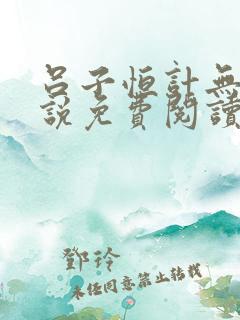 呂子恒計無
說免費閱讀
鄧玲
未经同意禁止转载